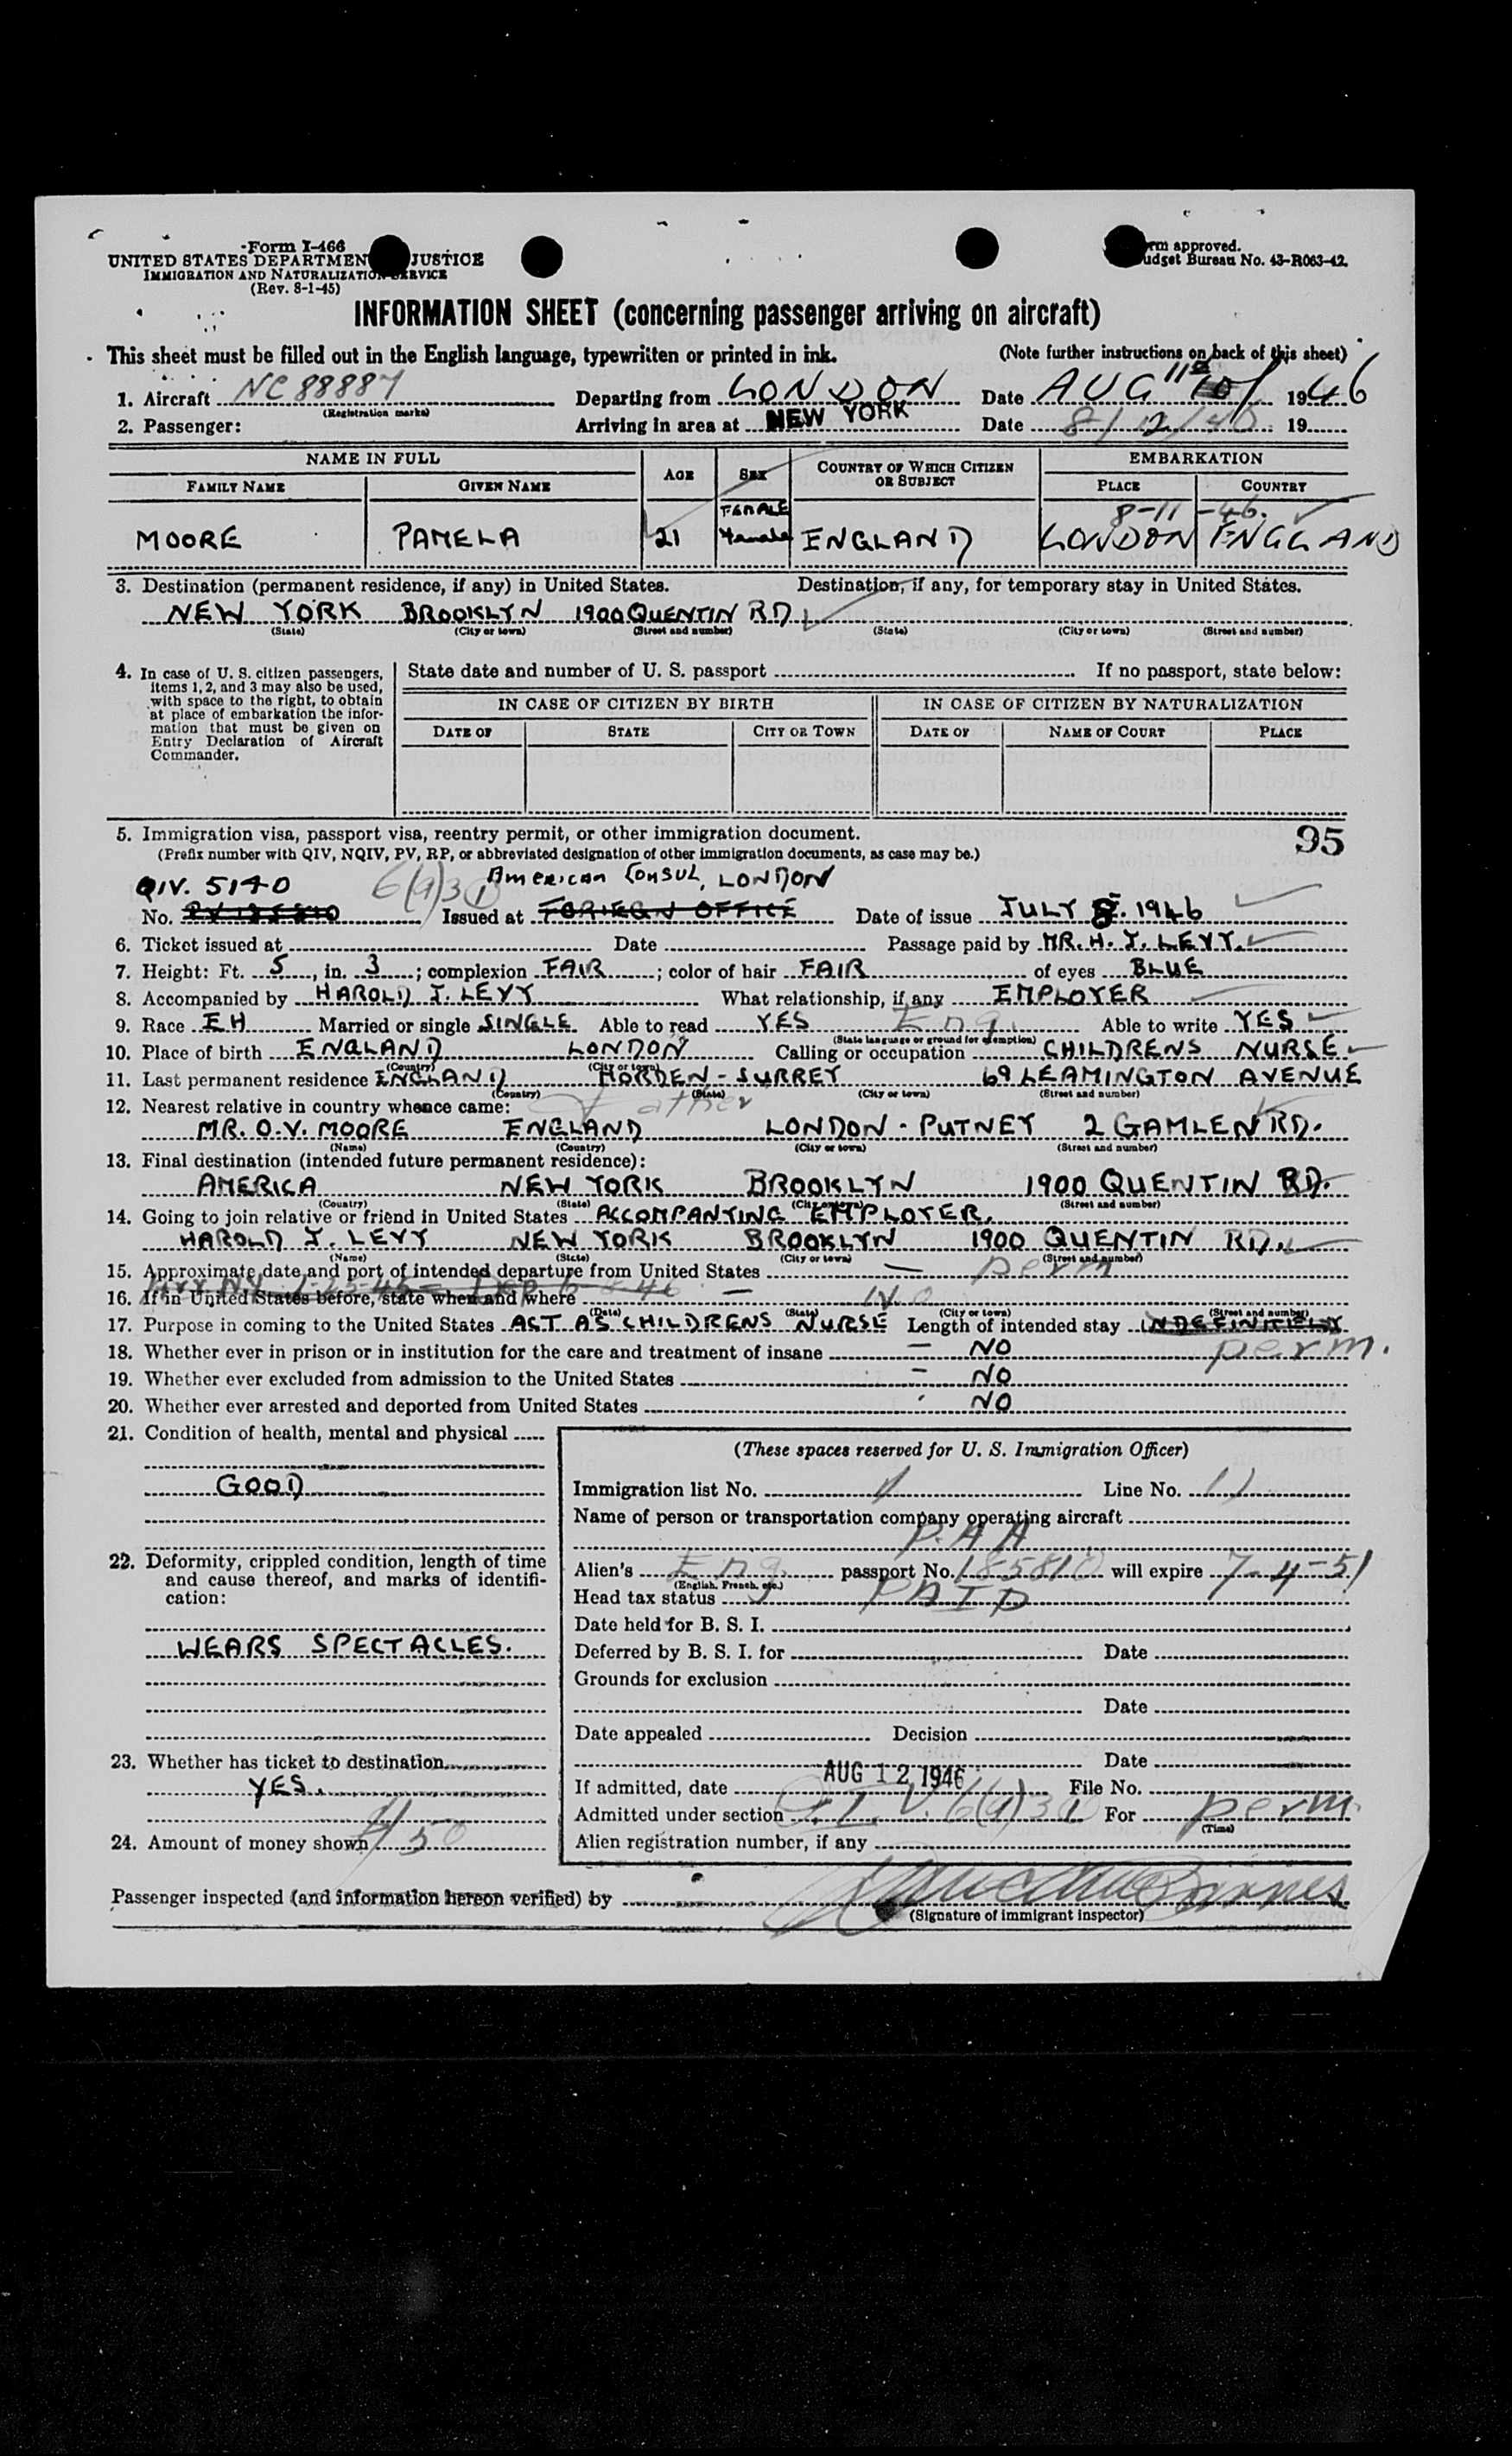 Form I-466
UNITED STATES DEPARTMENT JUSTICE
IMMIGRATION AND NATURALIZATION SERVICE
(Rev. 8-1-45)
rm approved.
udget Bureau No. 43-R063-42.
INFORMATION SHEET (concerning passenger arriving on aircraft)
This sheet must be filled out in the English language, typewritten or printed in ink. (Note further instructions on back of this sheet)
1. Aircraft NC 88887 Departing from LONDON Date AUG 11 1946
(Registration marks)
2. Passenger: Arriving in area at NEW YORK Date 8/12/46 19
NAME IN FULL AGE SEX COUNTRY OF WHICH CITIZEN OR SUBJECT EMBARKATION
FAMILY NAME GIVEN NAME PLACE COUNTRY
8-11-46.
FEMALE
MOORE PAMELA 21 Female ENGLAND LONDON ENGLAND
3. Destination (permanent residence, if any) in United States. Destination, if any, for temporary stay in United States.
NEW YORK BROOKLYN 1900 QUENTIN RD
(State) (City or town) (Street and number) (State) (City or town) (Street and number)
4. In case of U. S. citizen passengers, items 1, 2, and 3 may also be used, with space to the right, to obtain at place of embarkation the information that must be given on Entry Declaration of Aircraft Commander.
State date and number of U. S. passport If no passport, state below:
IN CASE OF CITIZEN BY BIRTH IN CASE OF CITIZEN BY NATURALIZATION
DATE OF STATE CITY OR TOWN DATE OF NAME OF COURT PLACE
5. Immigration visa, passport visa, reentry permit, or other immigration document. 95
(Prefix number with QIV, NQIV, PV, RP, or abbreviated designation of other immigration documents, as case may be.)
QIV. 5140 6(a)3 American Consul, LONDON
No. Issued at FORIEGN OFFICE Date of issue JULY 1946
6. Ticket issued at Date Passage paid by MR. H. J. LEVY.
7. Height: Ft. 5, in. 3; complexion FAIR; color of hair FAIR of eyes BLUE
8. Accompanied by HAROLD J. LEVY What relationship, if any EMPLOYER
9. Race EH Married or single SINGLE Able to read YES Eng. Able to write YES
(State language or ground for exemption)
10. Place of birth ENGLAND LONDON Calling or occupation CHILDRENS NURSE
(Country) (City or town)
11. Last permanent residence ENGLAND MORDEN - SURREY 69 LEAMINGTON AVENUE
(Country) (State) (City or town) (Street and number)
12. Nearest relative in country whence came: Father
MR. O.V. MOORE ENGLAND LONDON - PUTNEY 2 GAMLEN RD.
(Name) (Country) (City or town) (Street and number)
13. Final destination (intended future permanent residence):
AMERICA NEW YORK BROOKLYN 1900 QUENTIN RD.
(Country) (State) (City or town) (Street and number)
14. Going to join relative or friend in United States ACCOMPANYING EMPLOYER.
HAROLD J. LEVY NEW YORK BROOKLYN 1900 QUENTIN RD.
(Name) (State) (City or town) (Street and number)
15. Approximate date and port of intended departure from United States — perm
16. If in United States before, state when and where — No
(Date) (State) (City or town) (Street and number)
17. Purpose in coming to the United States ACT AS CHILDRENS NURSE Length of intended stay INDEFINITELY
perm.
18. Whether ever in prison or in institution for the care and treatment of insane — NO
19. Whether ever excluded from admission to the United States — NO
20. Whether ever arrested and deported from United States NO
21. Condition of health, mental and physical
GOOD
22. Deformity, crippled condition, length of time and cause thereof, and marks of identification:
WEARS SPECTACLES.
23. Whether has ticket to destination
YES.
24. Amount of money shown 50
(These spaces reserved for U. S. Immigration Officer)
Immigration list No. 1 Line No. 11
Name of person or transportation company operating aircraft
P.A.A
Alien's Eng. passport No. 185810 will expire 7-4-51
(English, French, etc.)
Head tax status PAID
Date held for B. S. I.
Deferred by B. S. I. for Date
Grounds for exclusion
Date
Date appealed Decision
Date
If admitted, date AUG 12 1946 File No.
Admitted under section Q.I.V. 6(a)3 For perm
(Time)
Alien registration number, if any
Passenger inspected (and information hereon verified) by
(Signature of immigrant inspector)